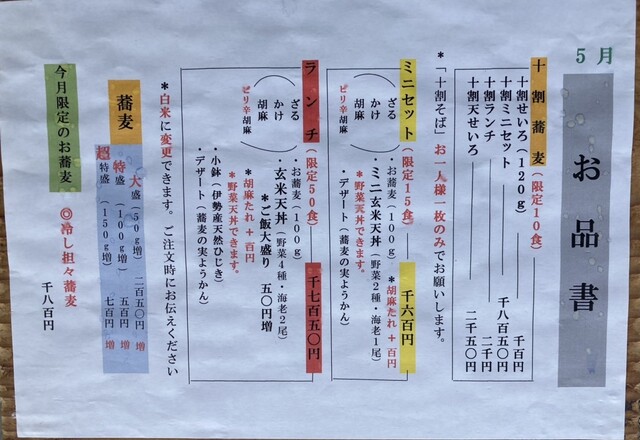 5月
お品書
十割蕎麦(限定10食)
十割せいろ(120g)千百円
十割ミニセット 千八百五〇円
十割ランチ 二千円
十割天せいろ 二千五〇円
*「十割そば」お一人様一枚のみでお願いします。
ミニセット(限定15食)千六百円
ざる
かけ
胡麻
ピリ辛胡麻
・お蕎麦(100g)*胡麻たれ+百円
・ミニ玄米天丼(野菜2種・海老1尾)
*野菜天丼できます。
・デザート(蕎麦の実ようかん)
ランチ(限定50食)千七百五〇円
ざる
かけ
胡麻
ピリ辛胡麻
・お蕎麦(100g)
・玄米天丼(野菜4種・海老2尾)
*ご飯大盛り 五〇円増
*胡麻たれ+百円
*野菜天丼できます。
・小鉢(伊勢産天然ひじき)
・デザート(蕎麦の実ようかん)
*白米に変更できます。ご注文時にお伝えください
蕎麦
大盛(50g増)二百五〇円 増
特盛(100g増)五百円 増
超特盛(150g増)七百円 増
今月限定のお蕎麦
◎冷し担々蕎麦
千八百円